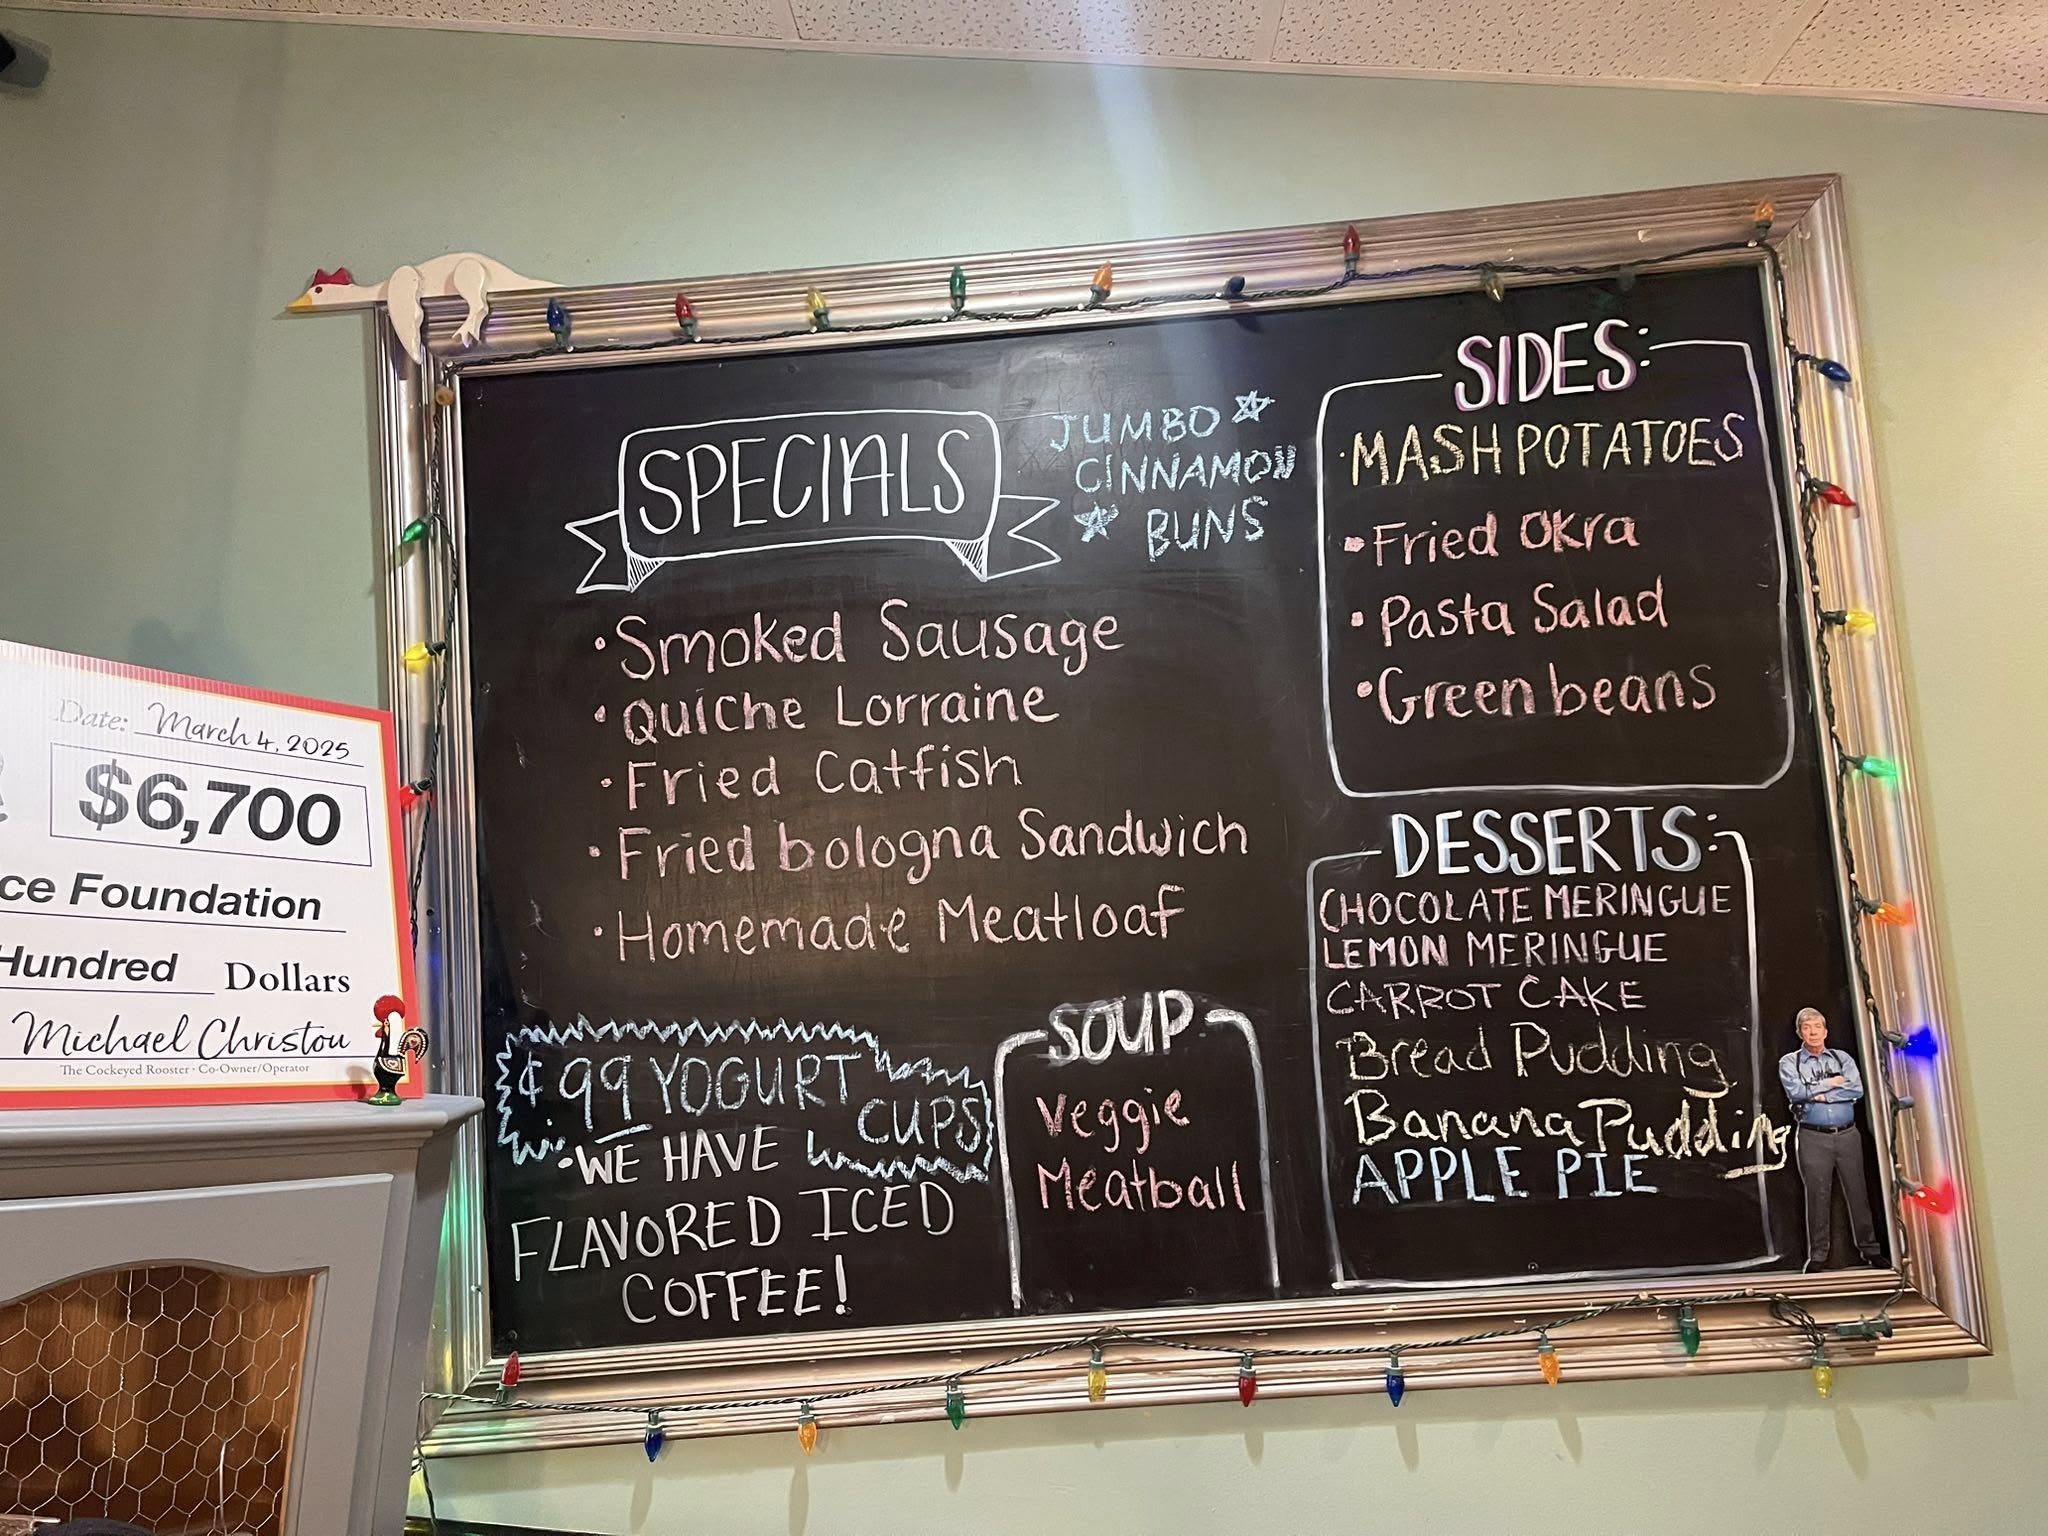 Date: March 4, 2025
$6,700
ce Foundation
Hundred Dollars
Michael Christou
The Cockeyed Rooster - Co-Owner/Operator
SPECIALS
JUMBO
CINNAMON
BUNS
• Smoked Sausage
• Quiche Lorraine
• Fried Catfish
• Fried bologna Sandwich
• Homemade Meatloaf
¢99 YOGURT
CUPS
• WE HAVE
FLAVORED ICED
COFFEE!
SOUP
Veggie
Meatball
SIDES:
• MASH POTATOES
• Fried Okra
• Pasta Salad
• Green beans
DESSERTS:
CHOCOLATE MERINGUE
LEMON MERINGUE
CARROT CAKE
Bread Pudding
Banana Pudding
APPLE PIE